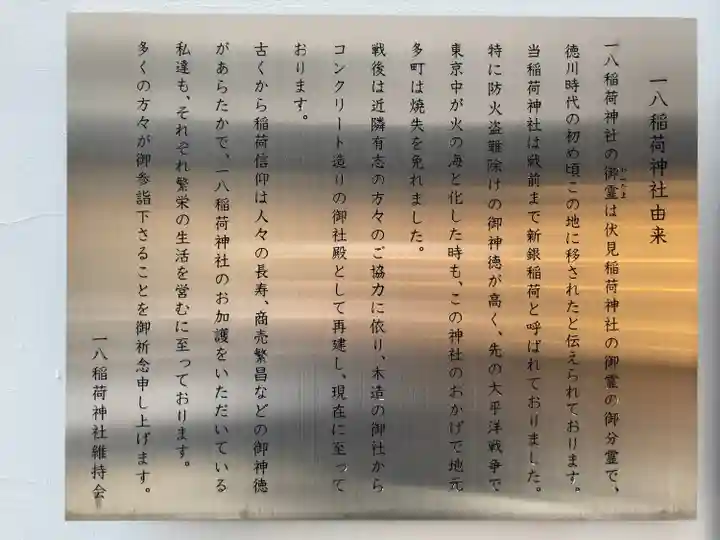 一八稲荷神社由来
一八稲荷神社の御霊は伏見稲荷神社の御霊の御分霊で、
徳川時代の初め頃この地に移されたと伝えられております。
当稲荷神社は戦前まで新銀稲荷と呼ばれておりました。
特に防火盗難除けの御神徳が高く、先の大平洋戦争で、
東京中が火の海と化した時も、この神社のおかげで地元
多町は焼失を免れました。
戦後は近隣有志の方々のご協力に依り、木造の御社から
コンクリート造りの御社殿として再建し、現在に至って
おります。
古くから稲荷信仰は人々の長寿、商売繁昌などの御神徳
があらたかで、一八稲荷神社のお加護をいただいている
私達も、それぞれ繁栄の生活を営むに至っております。
多くの方々が御参詣下さることを御祈念申し上げます。
一八稲荷神社維持会